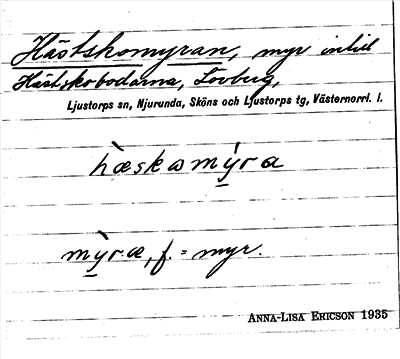 Hästskomyran, myr intill
Hästskobodarna, Lövberg,
Ljustorps sn, Njurunda, Sköns och Ljustorps tg, Västernorrl. l.
hæskomýra
mỳræ, f. = myr.
ANNA-LISA ERICSON 1935